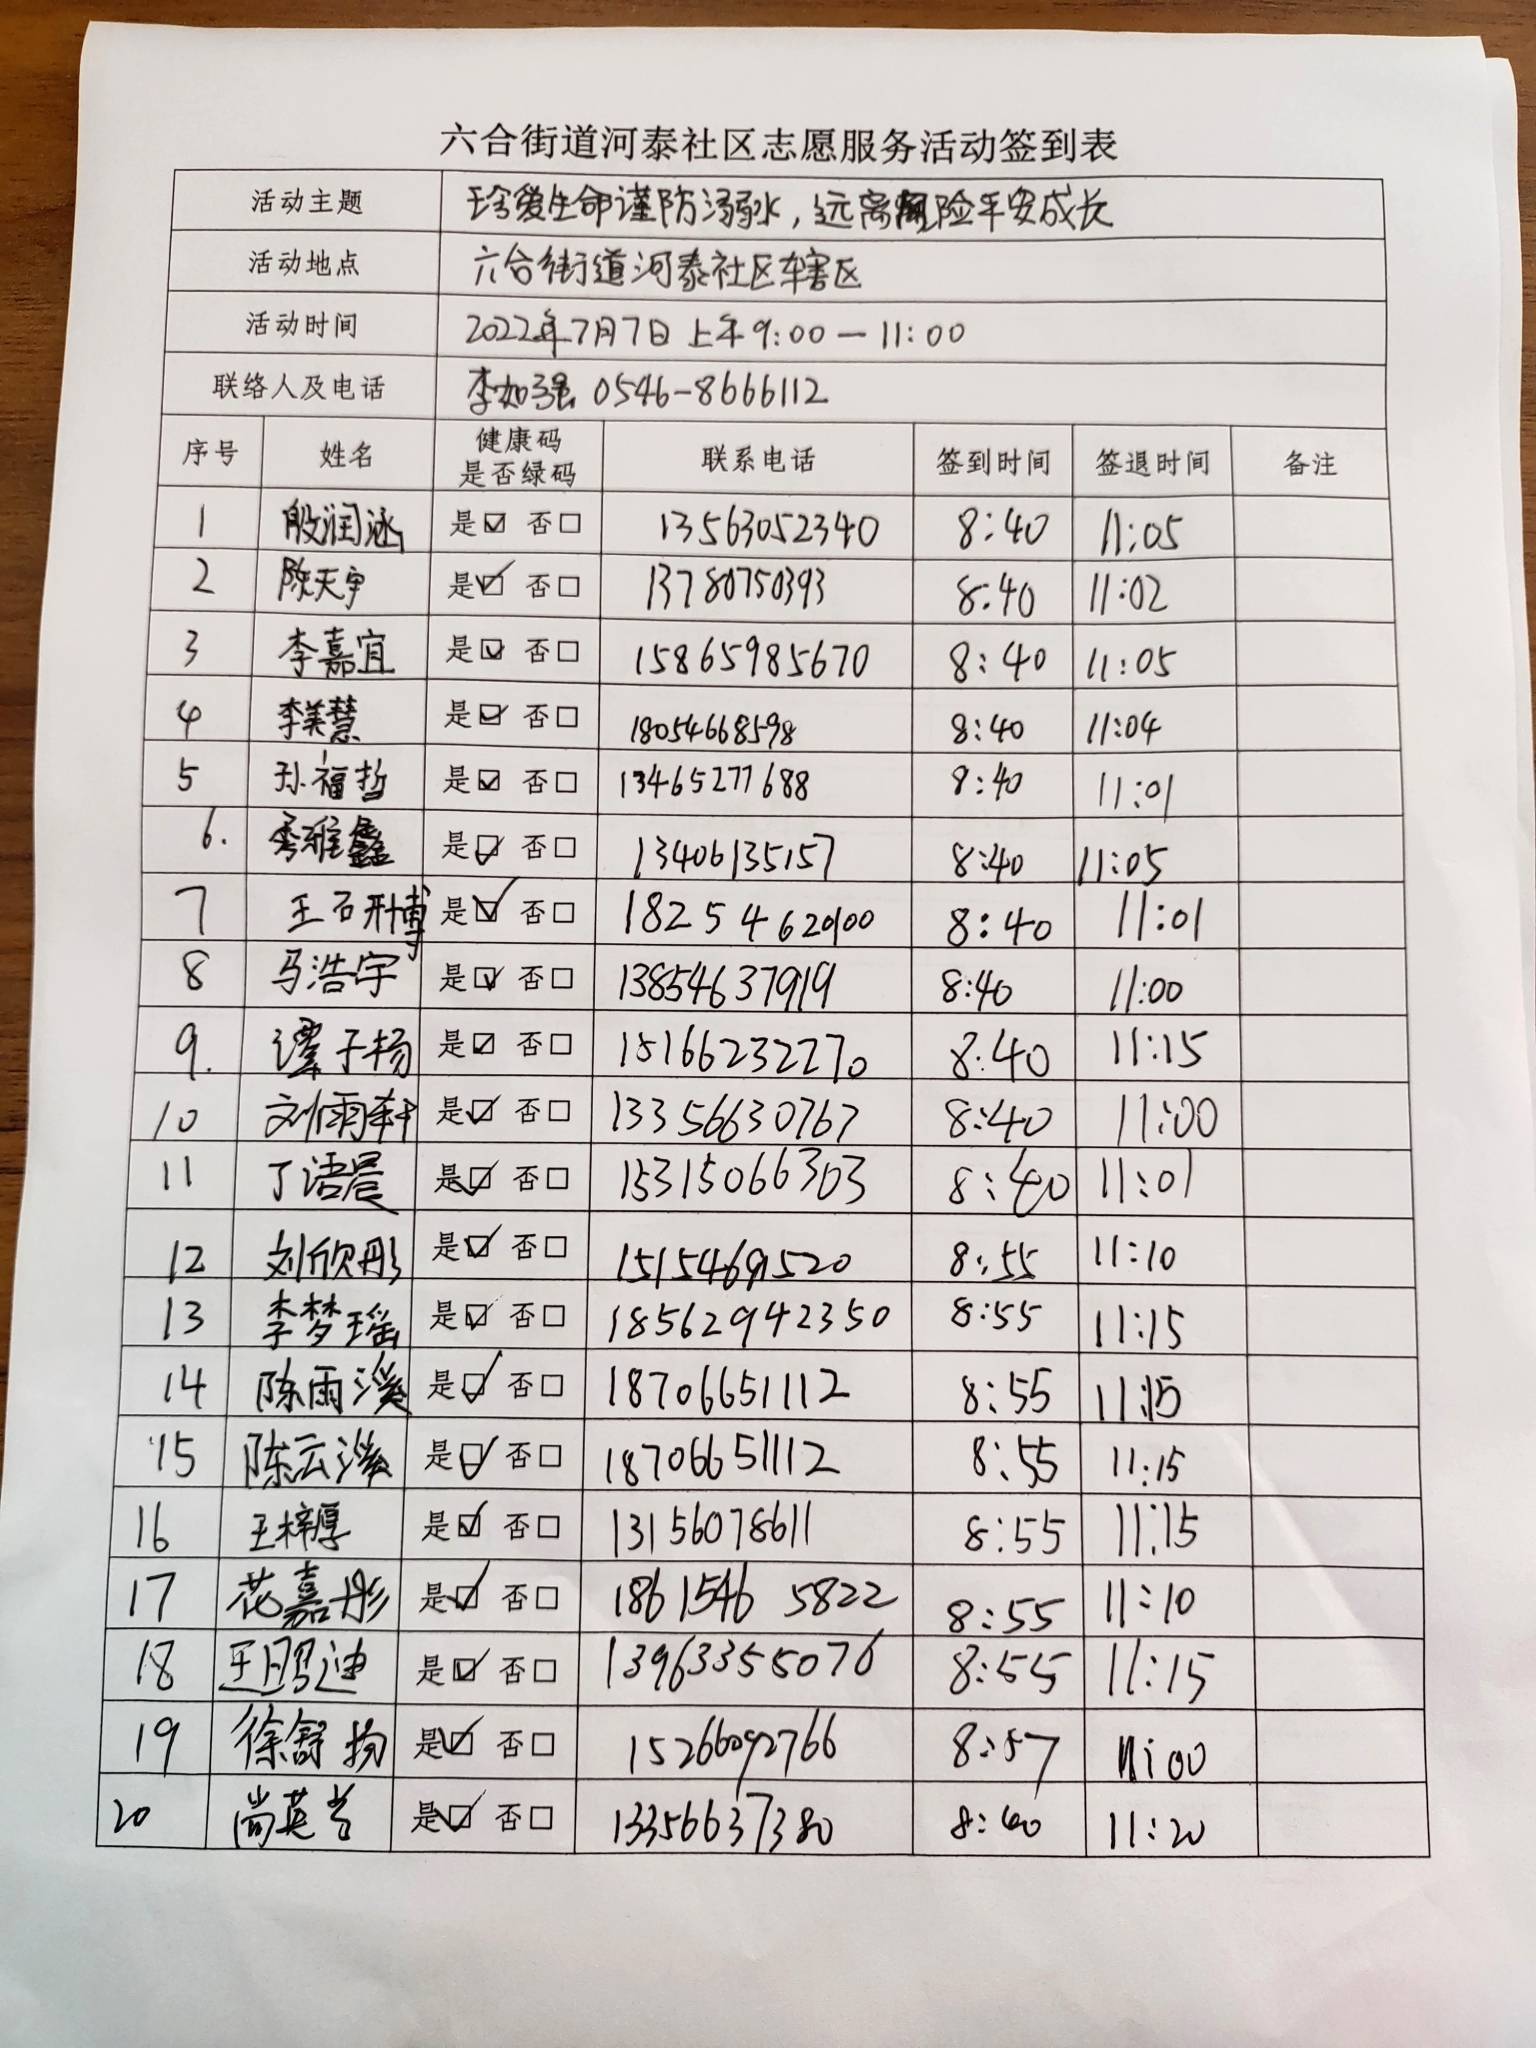 六合街道河泰社区志愿服务活动签到表
活动主题 珍爱生命谨防溺水，远离风险平安成长
活动地点 六合街道河泰社区辖区
活动时间 2022年7月7日上午9:00—11:00
联络人及电话 李如强 0546-8666112
序号 姓名 健康码是否绿码 联系电话 签到时间 签退时间 备注
1 殷润涵 是☑ 否□ 13563052340 8:40 11:05
2 陈天宇 是☑ 否□ 13780750393 8:40 11:02
3 李嘉宜 是☑ 否□ 15865985670 8:40 11:05
4 李美慧 是☑ 否□ 18054668598 8:40 11:04
5 孙福哲 是☑ 否□ 13465277688 8:40 11:01
6. 是☑ 否□ 13406135157 8:40 11:05
7 王研博 是☑ 否□ 18254620100 8:40 11:01
8 马浩宇 是☑ 否□ 13854637919 8:40 11:00
9. 谭子杨 是☑ 否□ 15166232270 8:40 11:15
10 刘雨轩 是☑ 否□ 13356630767 8:40 11:00
11 丁语晨 是☑ 否□ 15315066303 8:40 11:01
12 刘欣彤 是☑ 否□ 15154691520 8:55 11:10
13 李梦瑶 是☑ 否□ 18562942350 8:55 11:15
14 陈雨溪 是☑ 否□ 18706651112 8:55 11:15
15 陈云溪 是☑ 否□ 18706651112 8:55 11:15
16 王梓厚 是☑ 否□ 13156078611 8:55 11:15
17 花嘉彤 是☑ 否□ 18615465822 8:55 11:10
18 是☑ 否□ 13963355076 8:55 11:15
19 徐舒扬 是☑ 否□ 15266092766 8:57 11:00
20 尚英兰 是☑ 否□ 13356637380 8:40 11:20